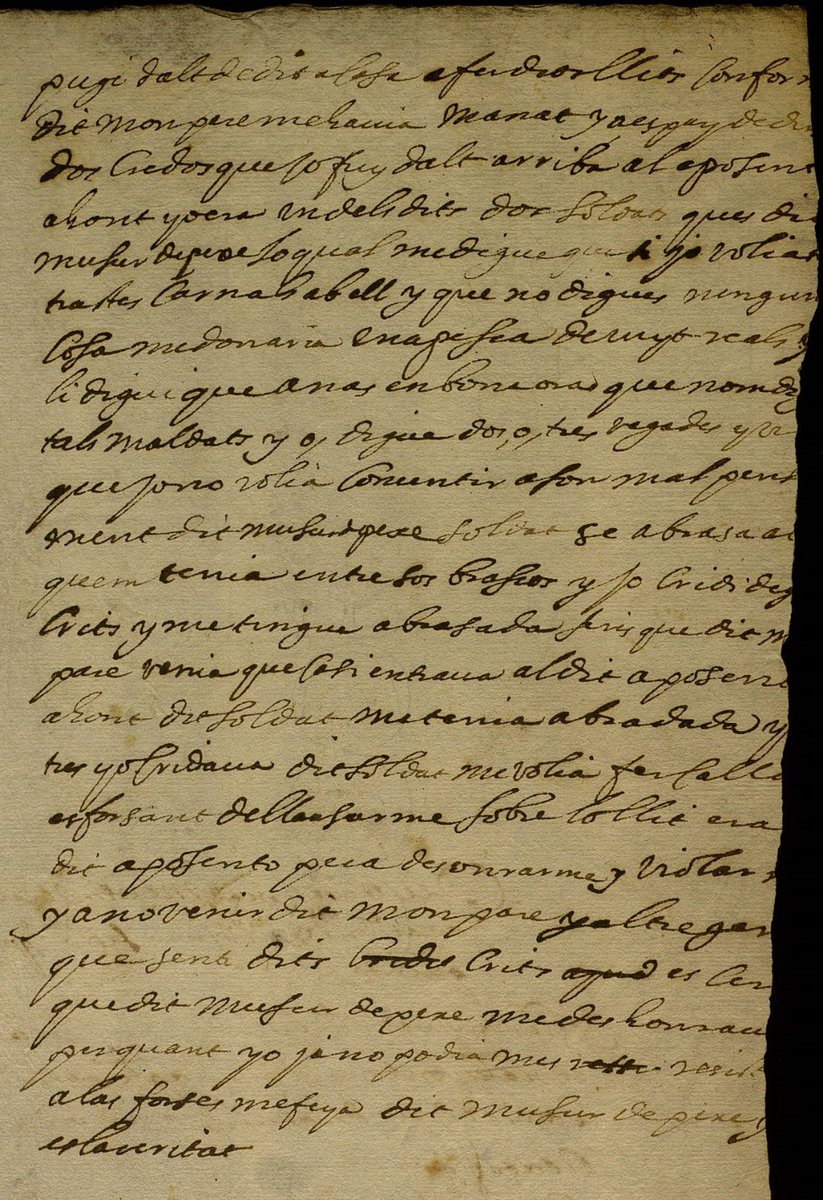 pugi dalt de dita casa a fer dits llits confor
dit mon pare me havia manat y a espay de di
dos Credos que jo fuy dalt arriba al aposent
ahont yo era un dels dits dos soldats ques diu
musur de pere lo qual me digue que si jo volia
tractes carnals ab ell y que no digues ninguna
cosa me donaria una pessa de vuyt reals y
li digui que anas en bona ora que nom di
tals maldats y o, digue dos, o, tres vegades y vi
que jo no volia consentir a son mal pens
ament dit musur de pere soldat se abrasa a
quem tenia entre sos brassos y jo cridi de g
Crits y me tingue abrasada fins que dit m
pare venia que casi entrava al dit aposen
ahont dit soldat me tenia abrasada y
tres yo cridava dit soldat me volia fer calla
esforsant de llansarme sobre lo llit era
dit aposento pera desonrarme y violar
y a no venir dit mon pare y altre gen
que senti dits crits es cer
que dit musur de pere me deshonrav
per quant yo ja no podia mes resist
a las forses me feya dit musur de pere y
es la veritat